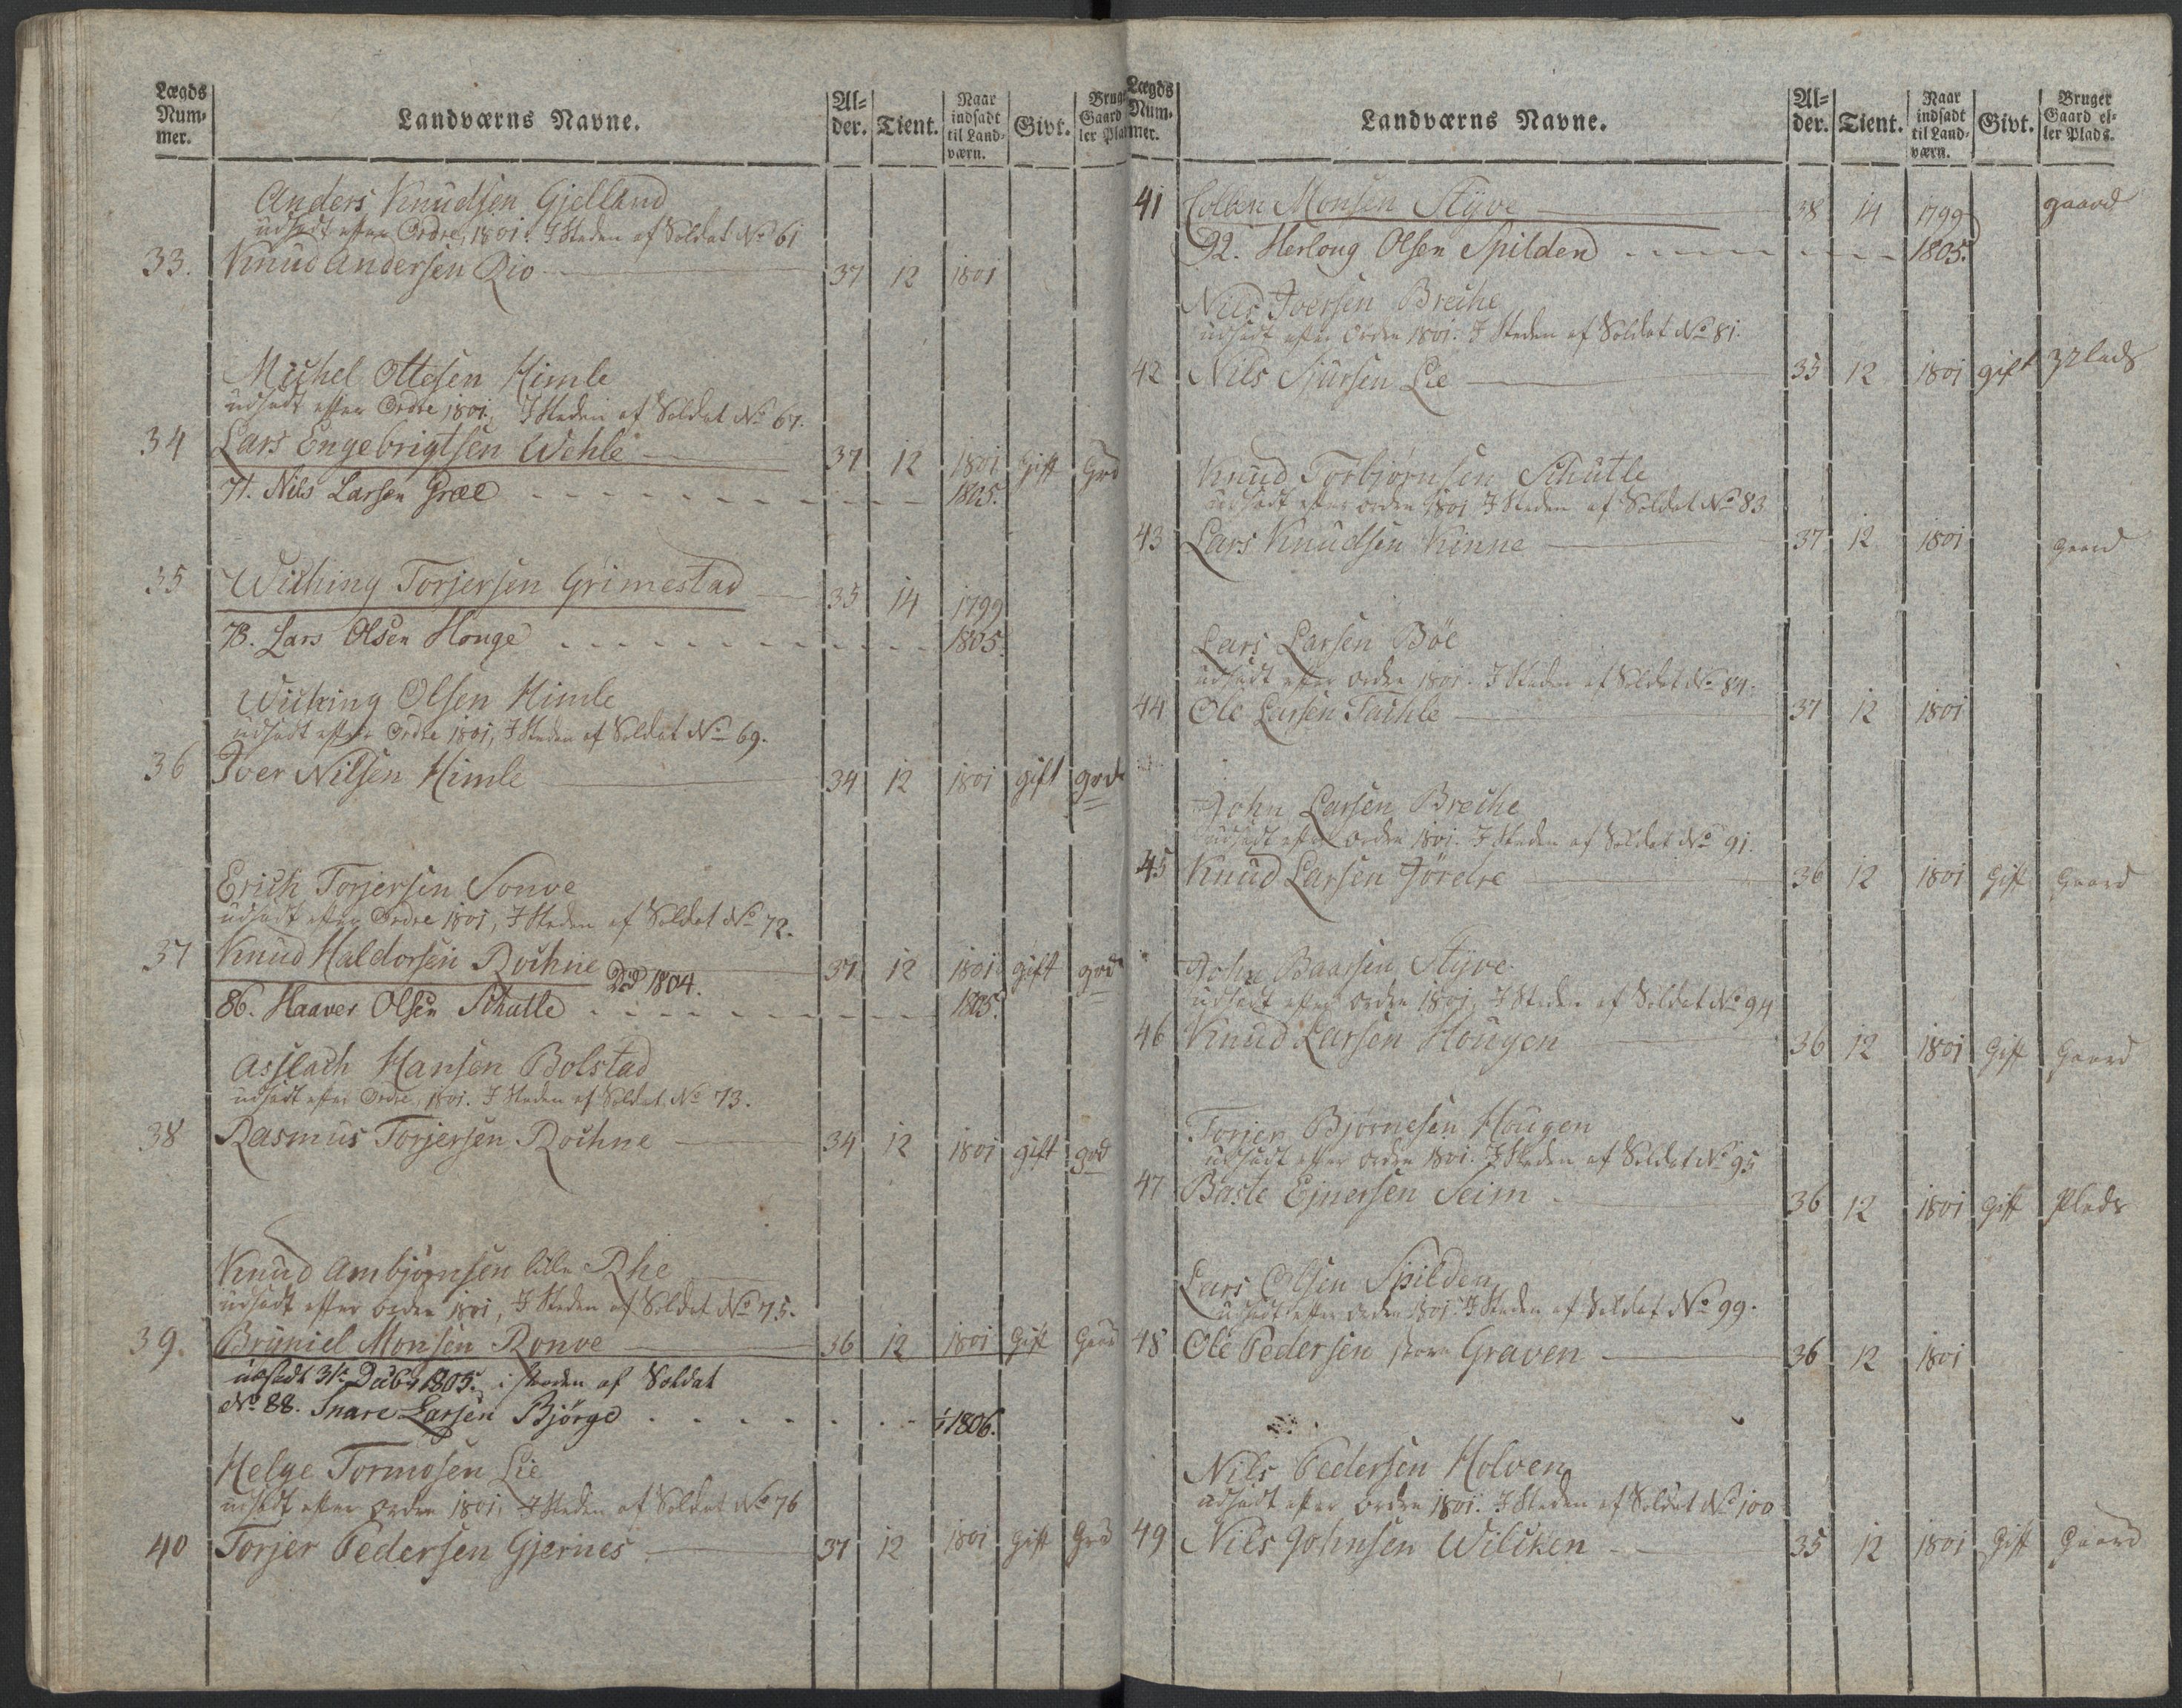 Lægds Num- mer. Landværns Navne. Al- der. Tient. Naar indsadt til Land- værn. Givt. Bruge Gaard ler Pla
Anders Knudsen Gjelland
udsadt efter Ordre, 1801. I Steden af Soldat No 61
33. Knud Andersen Qio 37 12 1801
Michel Ottesen Himle
udsadt efter Ordre 1801, I Steden af Soldat No 67.
34 Lars Engebrigtsen Wehle 37 12 1801 Gift Grd
71. Nils Larsen Græe 1805.
35 Wiching Torjersen Grimestad 35 14 1799
78. Lars Olsen Houge 1805.
Wiching Olsen Himle
udsadt efter Ordre 1801, I Steden af Soldat No 69.
36 Iver Nilsen Himle 34 12 1801 gift grd
Erich Torjersen Sonve
udsadt efter Ordre 1801, I Steden af Soldat No 72.
37 Knud Haldorsen Rochne Død 1804. 37 12 1801 gift grd
86. Haaver Olsen Schutle 1805.
Asslach Hansen Bolstad
udsadt efter Ordre, 1801. I Steden af Soldat No 73.
38 Rasmus Torjersen Rochne 34 12 1801 gift grd
Knud Ambjørnsen lille Rhe
udsadt efter ordre 1801, I Steden af Soldat No 75.
39. Bruniel Monsen Ronve 36 12 1801 Gift Gaard
udsadt 31te Decbr 1805. i steden af Soldat
No 88. Snare Larsen Bjørge 1/1 1806.
Helge Tormosen Lie
udsadt efter ordre 1801, I Steden af Soldat No 76
40 Torjer Pedersen Gjernes 37 12 1801 Gift Grd
Lægds Num- mer. Landværns Navne. Al- der. Tient. Naar indsadt til Land- værn. Givt. Bruger Gaard el- ler Plads.
41 Colben Monsen Styve 38 14 1799 gaard
92. Herloug Olsen Spilden 1805.
Nils Iversen Breche
udsadt efter Ordre 1801. I Steden af Soldat No 81.
42 Nils Sjursen Lie 35 12 1801 gift Plads
Knud Torbjørnsen Schutle
udsadt efter ordre 1801 I Steden af Soldat No 83
43 Lars Knudsen Kinne 37 12 1801 Gaard
Lars Larsen Bøe
udsadt efter ordre 1801. I Steden af Soldat No 84.
44 Ole Larsen Tachle 37 12 1801
John Larsen Breche
udsadt efter ordre 1801. I Steden af Soldat No 91.
45 Knud Larsen Jørdre 36 12 1801 Gift Gaard
John Baarsen Styve
udsadt efter ordre 1801, I Steden af Soldat No 94
46 Knud Larsen Hougen 36 12 1801 Gift Gaard
Torjer Bjørnesen Hougen
udsadt efter ordre 1801. I Steden af Soldat No 95
47 Baste Ejnersen Seim 36 12 1801 Gift Plads
Lars Olsen Spilden
udsadt efter ordre 1801. I Steden af Soldat No 99.
48 Ole Pedersen store Graven 36 12 1801
Nils Pedersen Holven
udsadt efter ordre 1801. I Steden af Soldat No 100
49 Nils Johnsen Wilcken 35 12 1801 Gift Gaard